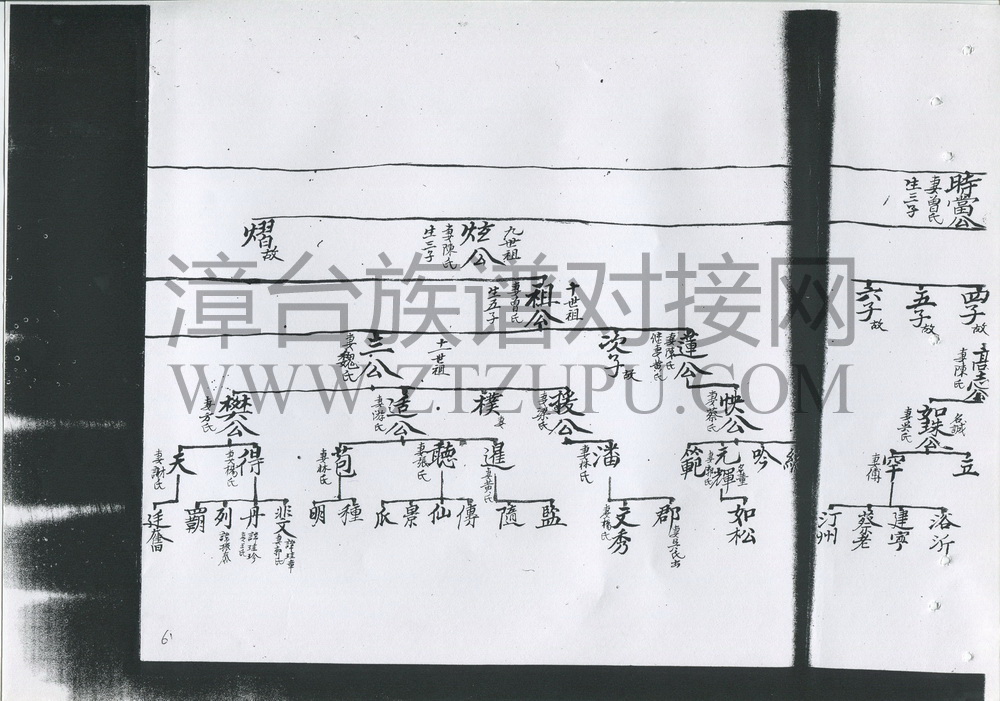 時當公
妻曾氏
生三子
九世祖
炫公
妻陳氏
生三子
熠故
四子故
五子故
六子故
十世祖
祖公
妻曾氏
生五子
妻陳氏
蓮公
妻陳氏
继妻黄氏
次子故
十一世祖
三公
妻魏氏
名誠
妻吴氏
快公
妻蔡氏
援公
妻梁氏
樸
适公
妻游氏
樊公
妻方氏
立
罕
妻傅
吟
元輝
範
潘
妻林氏
暹
妻黄氏
聽
妻張氏
苟
妻林氏
得
妻楊氏
夫
妻謝氏
浴沂
建寧
發老
汀州
如松
郡
文秀
妻楊氏
監
隨
傳
仙
景
瓜
種
明
斐文
丹
列
霸
漳台族谱对接网
WWW.ZTZUPU.COM
6